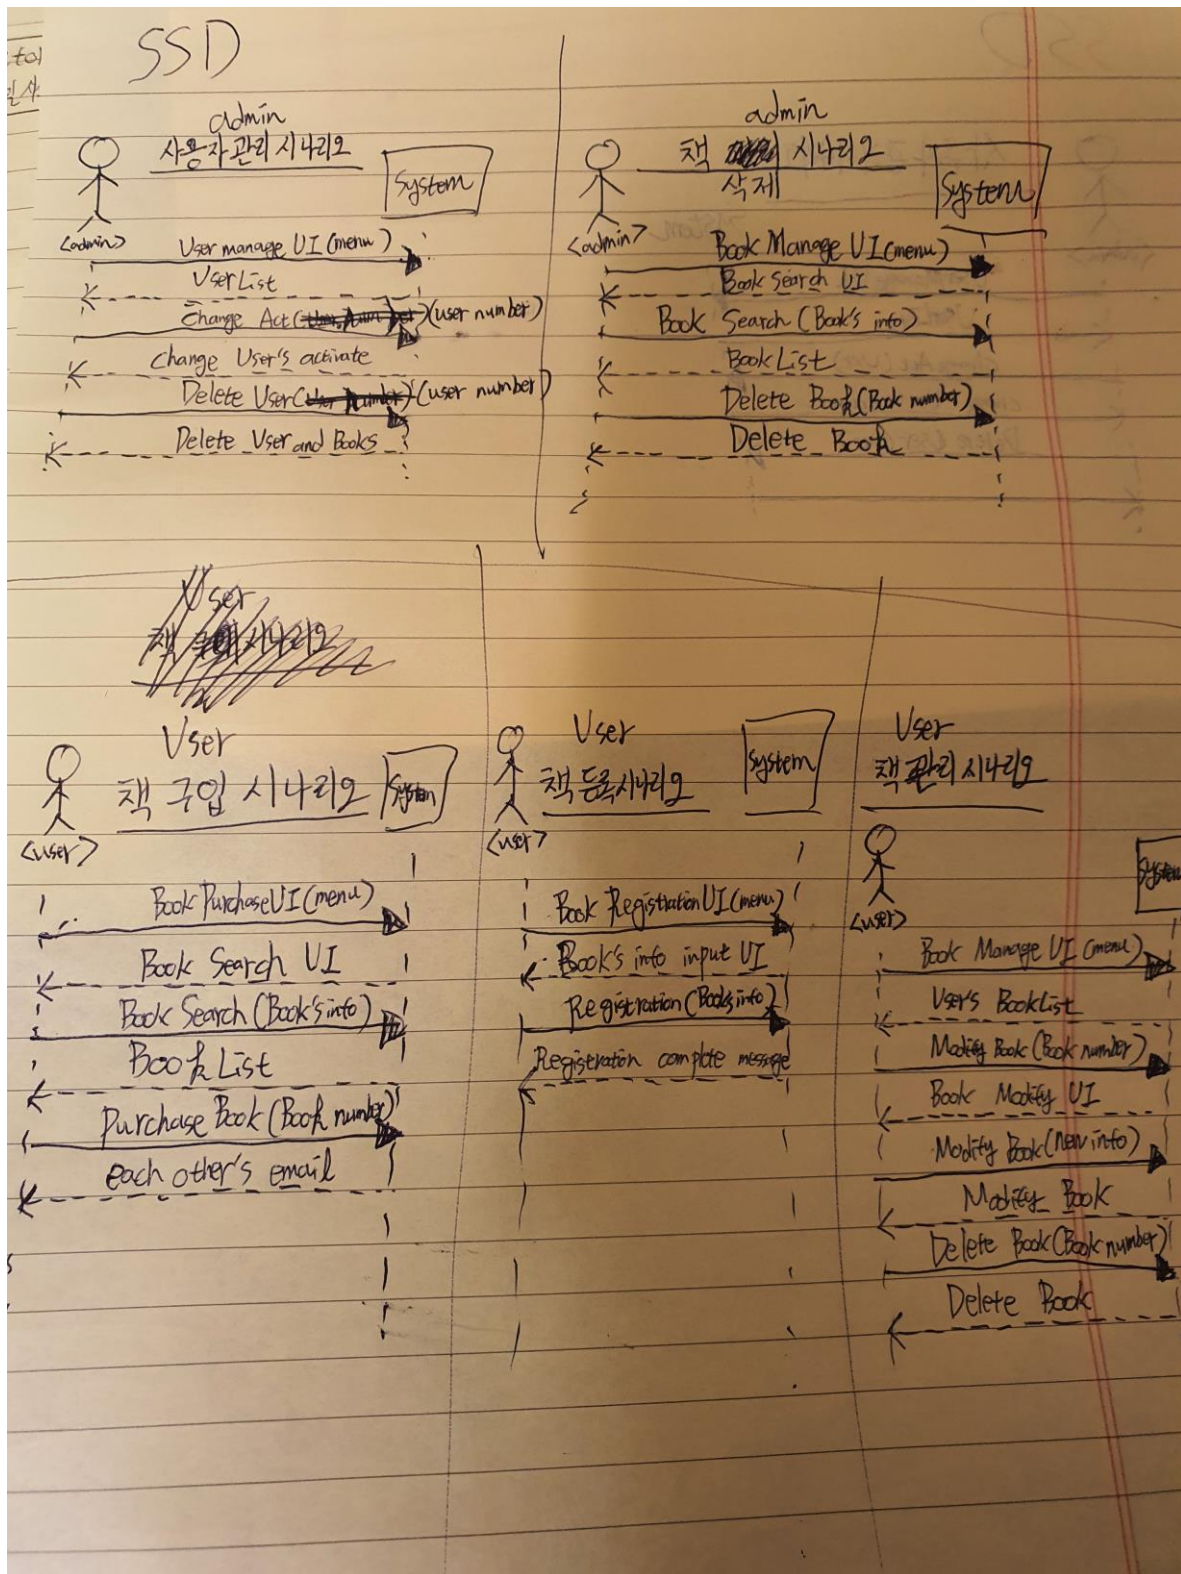 SSD
admin
사용자 관리 시나리오
System
<admin>
User manage UI (menu)
User List
Change Act (user number)
change User's activate
Delete User (user number)
Delete User and Books
admin
책 시나리오
삭제
System
<admin>
Book Manage UI (menu)
Book Search UI
Book Search (Book's info)
Book List
Delete Book (Book number)
Delete Book
User
책 시나리오
User
책 구입 시나리오
System
<user>
Book Purchase UI (menu)
Book Search UI
Book Search (Book's info)
Book List
Purchase Book (Book number)
each other's email
User
책 등록 시나리오
System
<user>
Book Registration UI (menu)
Book's info input UI
Registration (Book's info)
Registration complete message
User
책 관리 시나리오
System
<user>
Book Manage UI (menu)
User's BookList
Modify Book (Book number)
Book Modify UI
Modify Book (new info)
Modify Book
Delete Book (Book number)
Delete Book